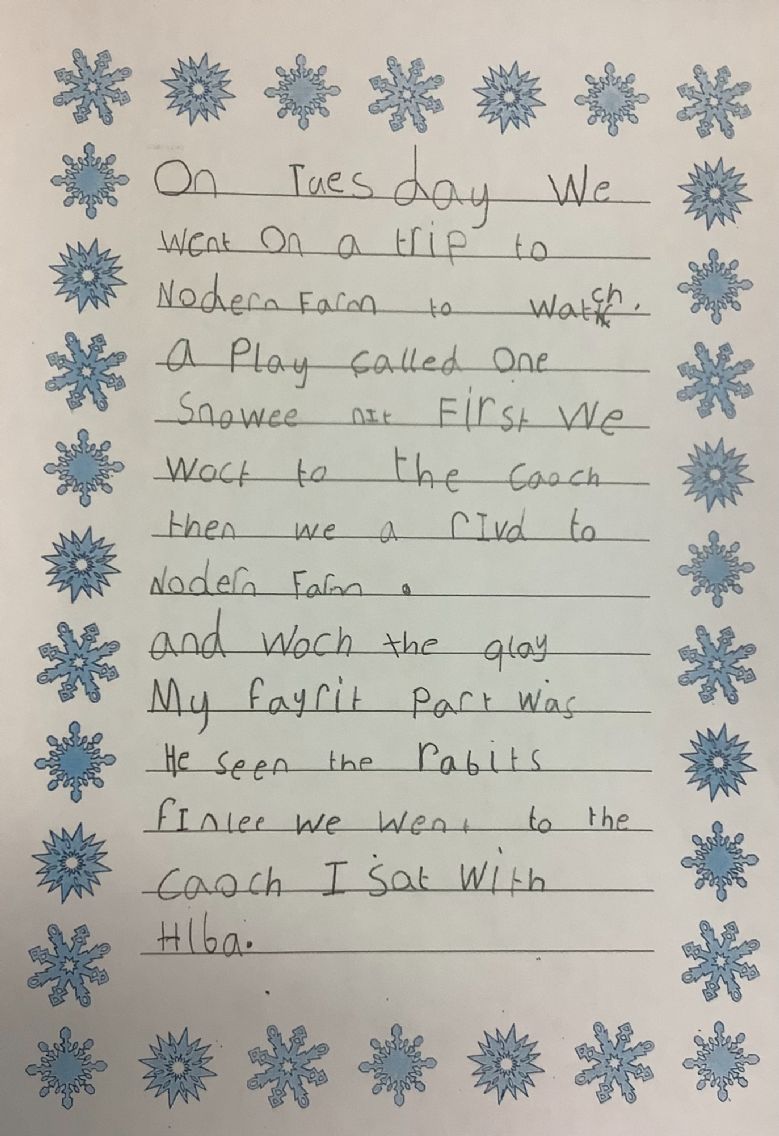 On Tuesday We
went On a trip to
Nodern Farm to watch.
a Play called One
Snowee nit First We
woct to the caoch
then we a rIvd to
Nodern Farm.
and woch the qlay
My fayrit part was
He seen the rabits
fInlee we went to the
caoch I sat with
Hlba.